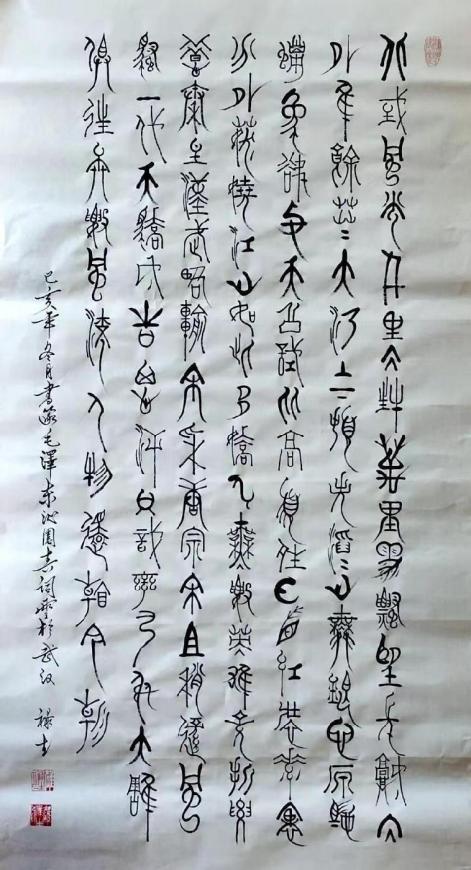 北或風光千里冰封萬里雪飄望長城内
外隹餘莽〻大河上下頓失滔〻山舞銀蛇原馳
蠟象欲与天公試比高須晴日看紅裝素裹
分外妖嬈江山如此多嬌引無數英雄竞折腰
惜秦皇漢武略輸文采唐宗宋且稍遜風
騷一代天驕成吉思汗只識彎弓射大雕
俱往矣數風流人物還看今朝
己亥年冬月書錄毛澤東沁園春詞雪於武汉